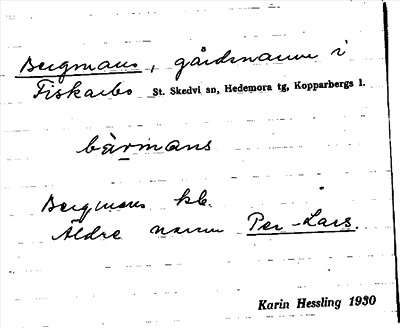 Bergmans, gårdsnamn i
Fiskarbo St. Skedvi sn, Hedemora tg, Kopparbergs l.
bärmans
Bergmans kb.
Äldre namn Per-Lars.
Karin Hessling 1930